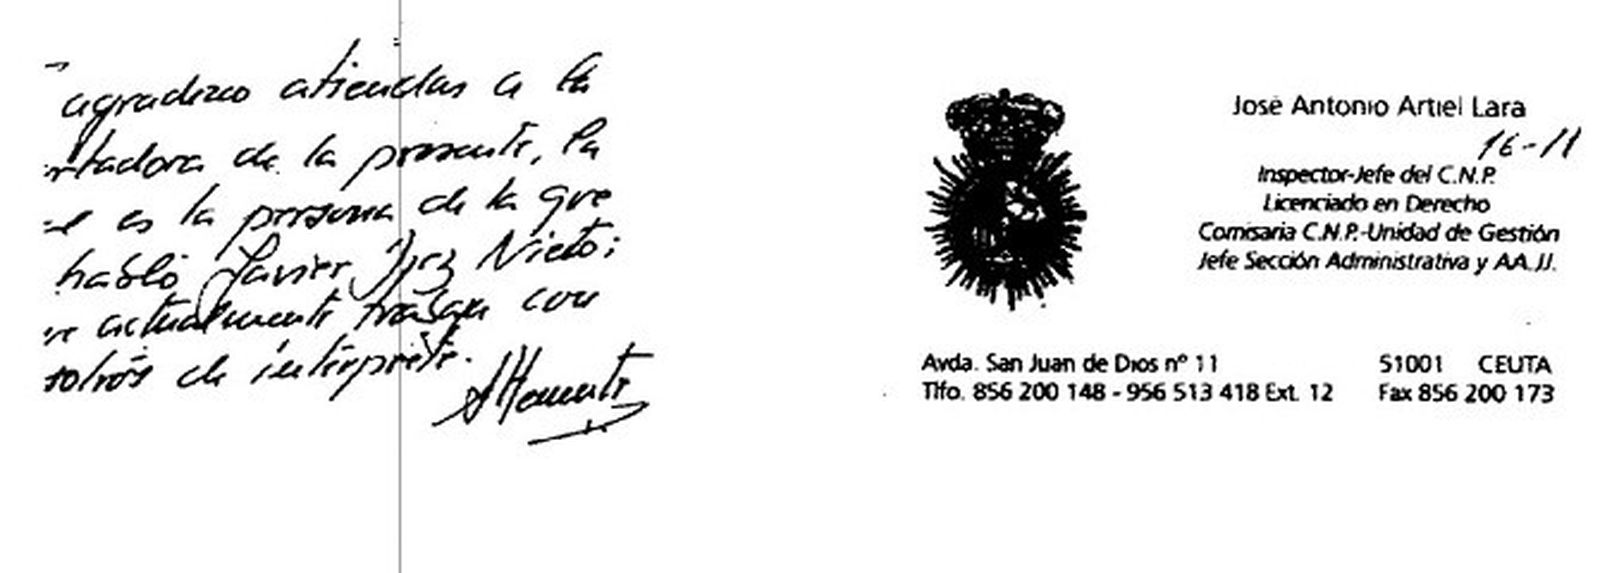 agradezco atiendas a la
rtadora de la presente, la
es la persona de la que
habló Javier Nieto;
actualmente trabaja con
sotros de intérprete.
José Antonio Artiel Lara
16-11
Inspector-Jefe del C.N.P.
Licenciado en Derecho
Comisaria C.N.P.-Unidad de Gestión
Jefe Sección Administrativa y AA.JJ.
Avda. San Juan de Dios nº 11 51001 CEUTA
Tlfo. 856 200 148 - 956 513 418 Ext. 12 Fax 856 200 173